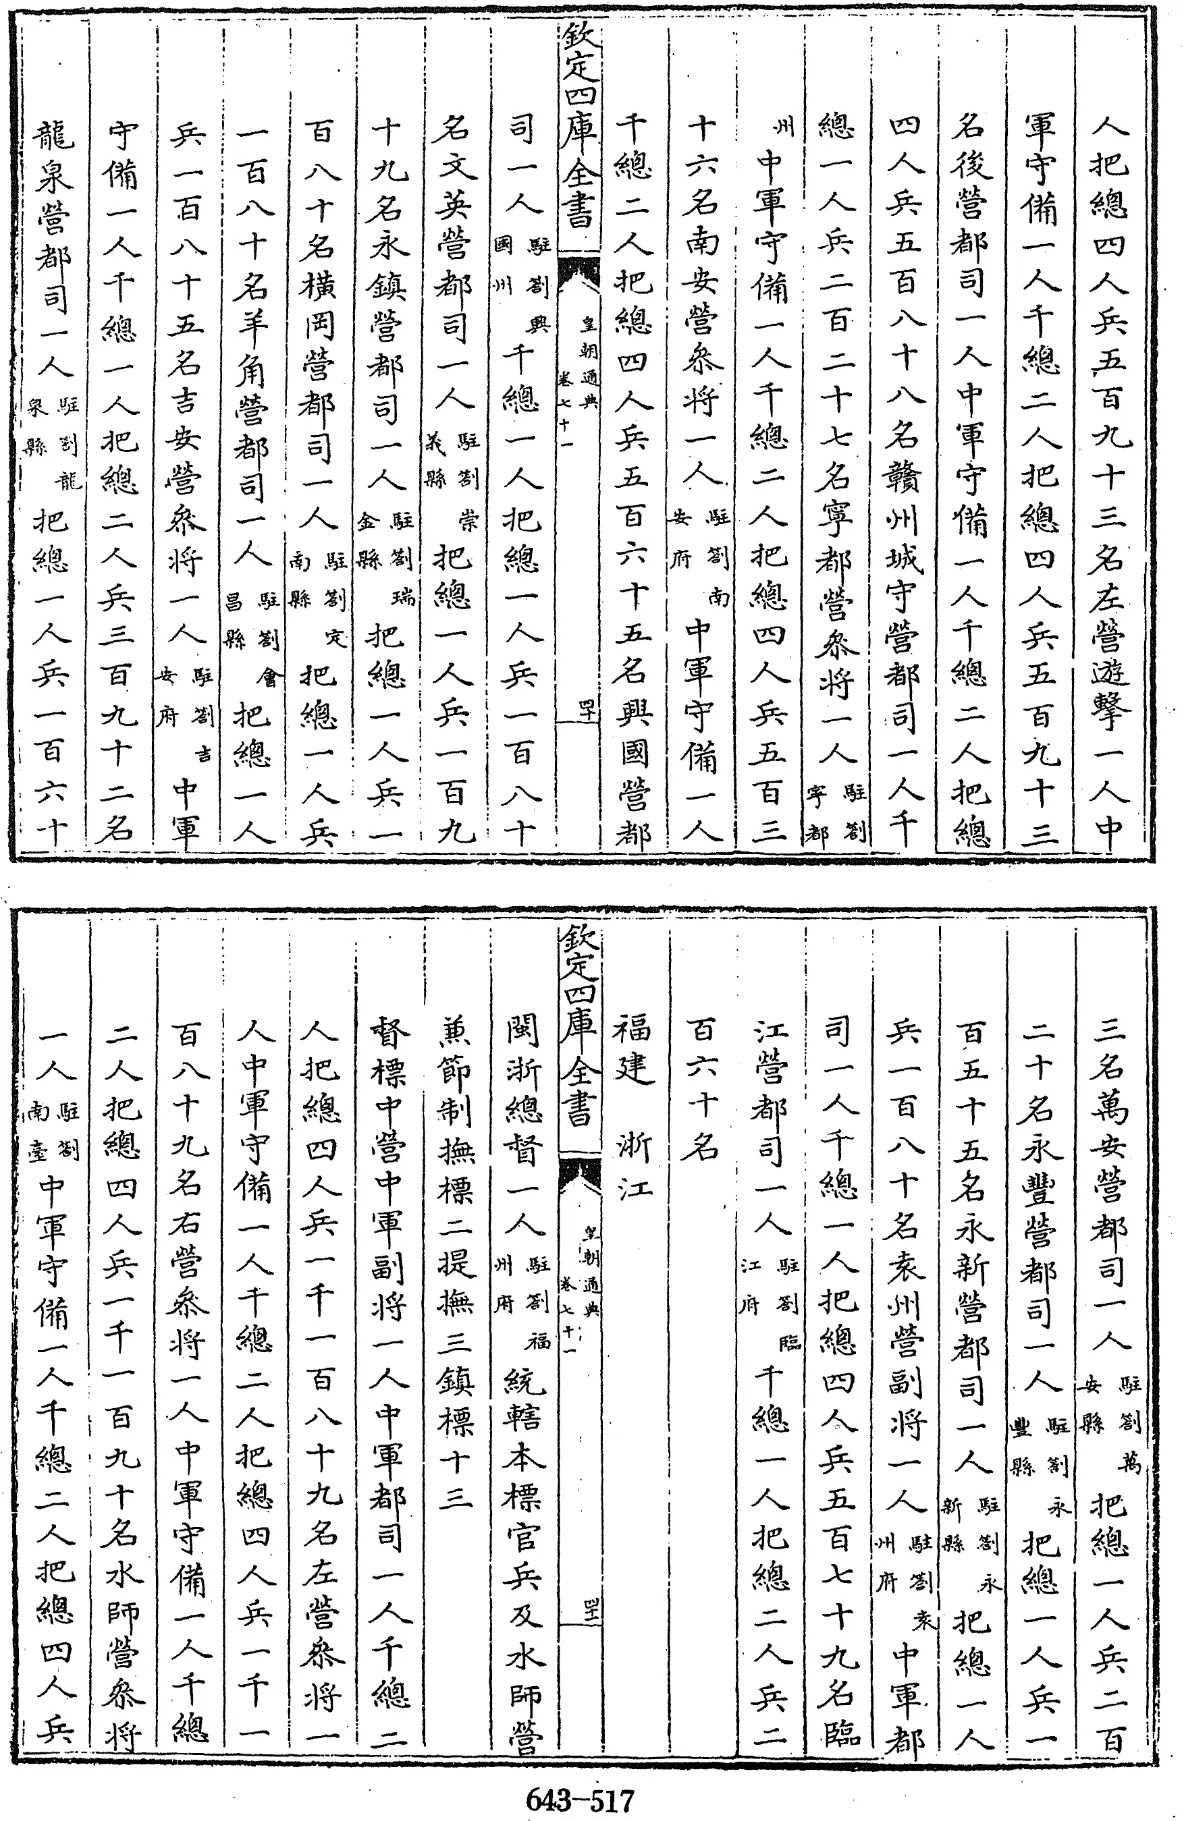 人把總四人兵五百九十三名左營遊擊一人中
軍守備一人千總二人把總四人兵五百九十三
名後營都司一人中軍守備一人千總二人把總
四人兵五百八十八名贛州城守營都司一人千
總一人兵二百二十七名寧都營叅將一人駐劄寧都
州中軍守備一人千總二人把總四人兵五百三
十六名南安營叅將一人駐劄南安府中軍守備一人
千總二人把總四人兵五百六十五名興國營都
欽定四庫全書
皇朝通典
卷七十一
四十
司一人駐劄興國州千總一人把總一人兵一百八十
名文英營都司一人駐劄崇義縣把總一人兵一百九
十九名永鎮營都司一人駐劄瑞金縣把總一人兵一
百八十名橫岡營都司一人駐劄定南縣把總一人兵
一百八十名羊角營都司一人駐劄會昌縣把總一人
兵一百八十五名吉安營叅將一人駐劄吉安府中軍
守備一人千總一人把總二人兵三百九十二名
龍泉營都司一人駐劄龍泉縣把總一人兵一百六十
三名萬安營都司一人駐劄萬安縣把總一人兵二百
二十名永豐營都司一人駐劄永豐縣把總一人兵一
百五十五名永新營都司一人駐劄永新縣把總一人
兵一百八十名袁州營副將一人駐劄袁州府中軍都
司一人千總一人把總四人兵五百七十九名臨
江營都司一人駐劄臨江府千總一人把總二人兵二
百六十名
福建 浙江
欽定四庫全書
皇朝通典
卷七十一
四十一
閩浙總督一人駐劄福州府統轄本標官兵及水師營
兼節制撫標二提撫三鎮標十三
督標中營中軍副將一人中軍都司一人千總二
人把總四人兵一千一百八十九名左營叅將一
人中軍守備一人千總二人把總四人兵一千一
百八十九名右營叅將一人中軍守備一人千總
二人把總四人兵一千一百九十名水師營叅將
一人駐劄南臺中軍守備一人千總二人把總四人兵
643-517